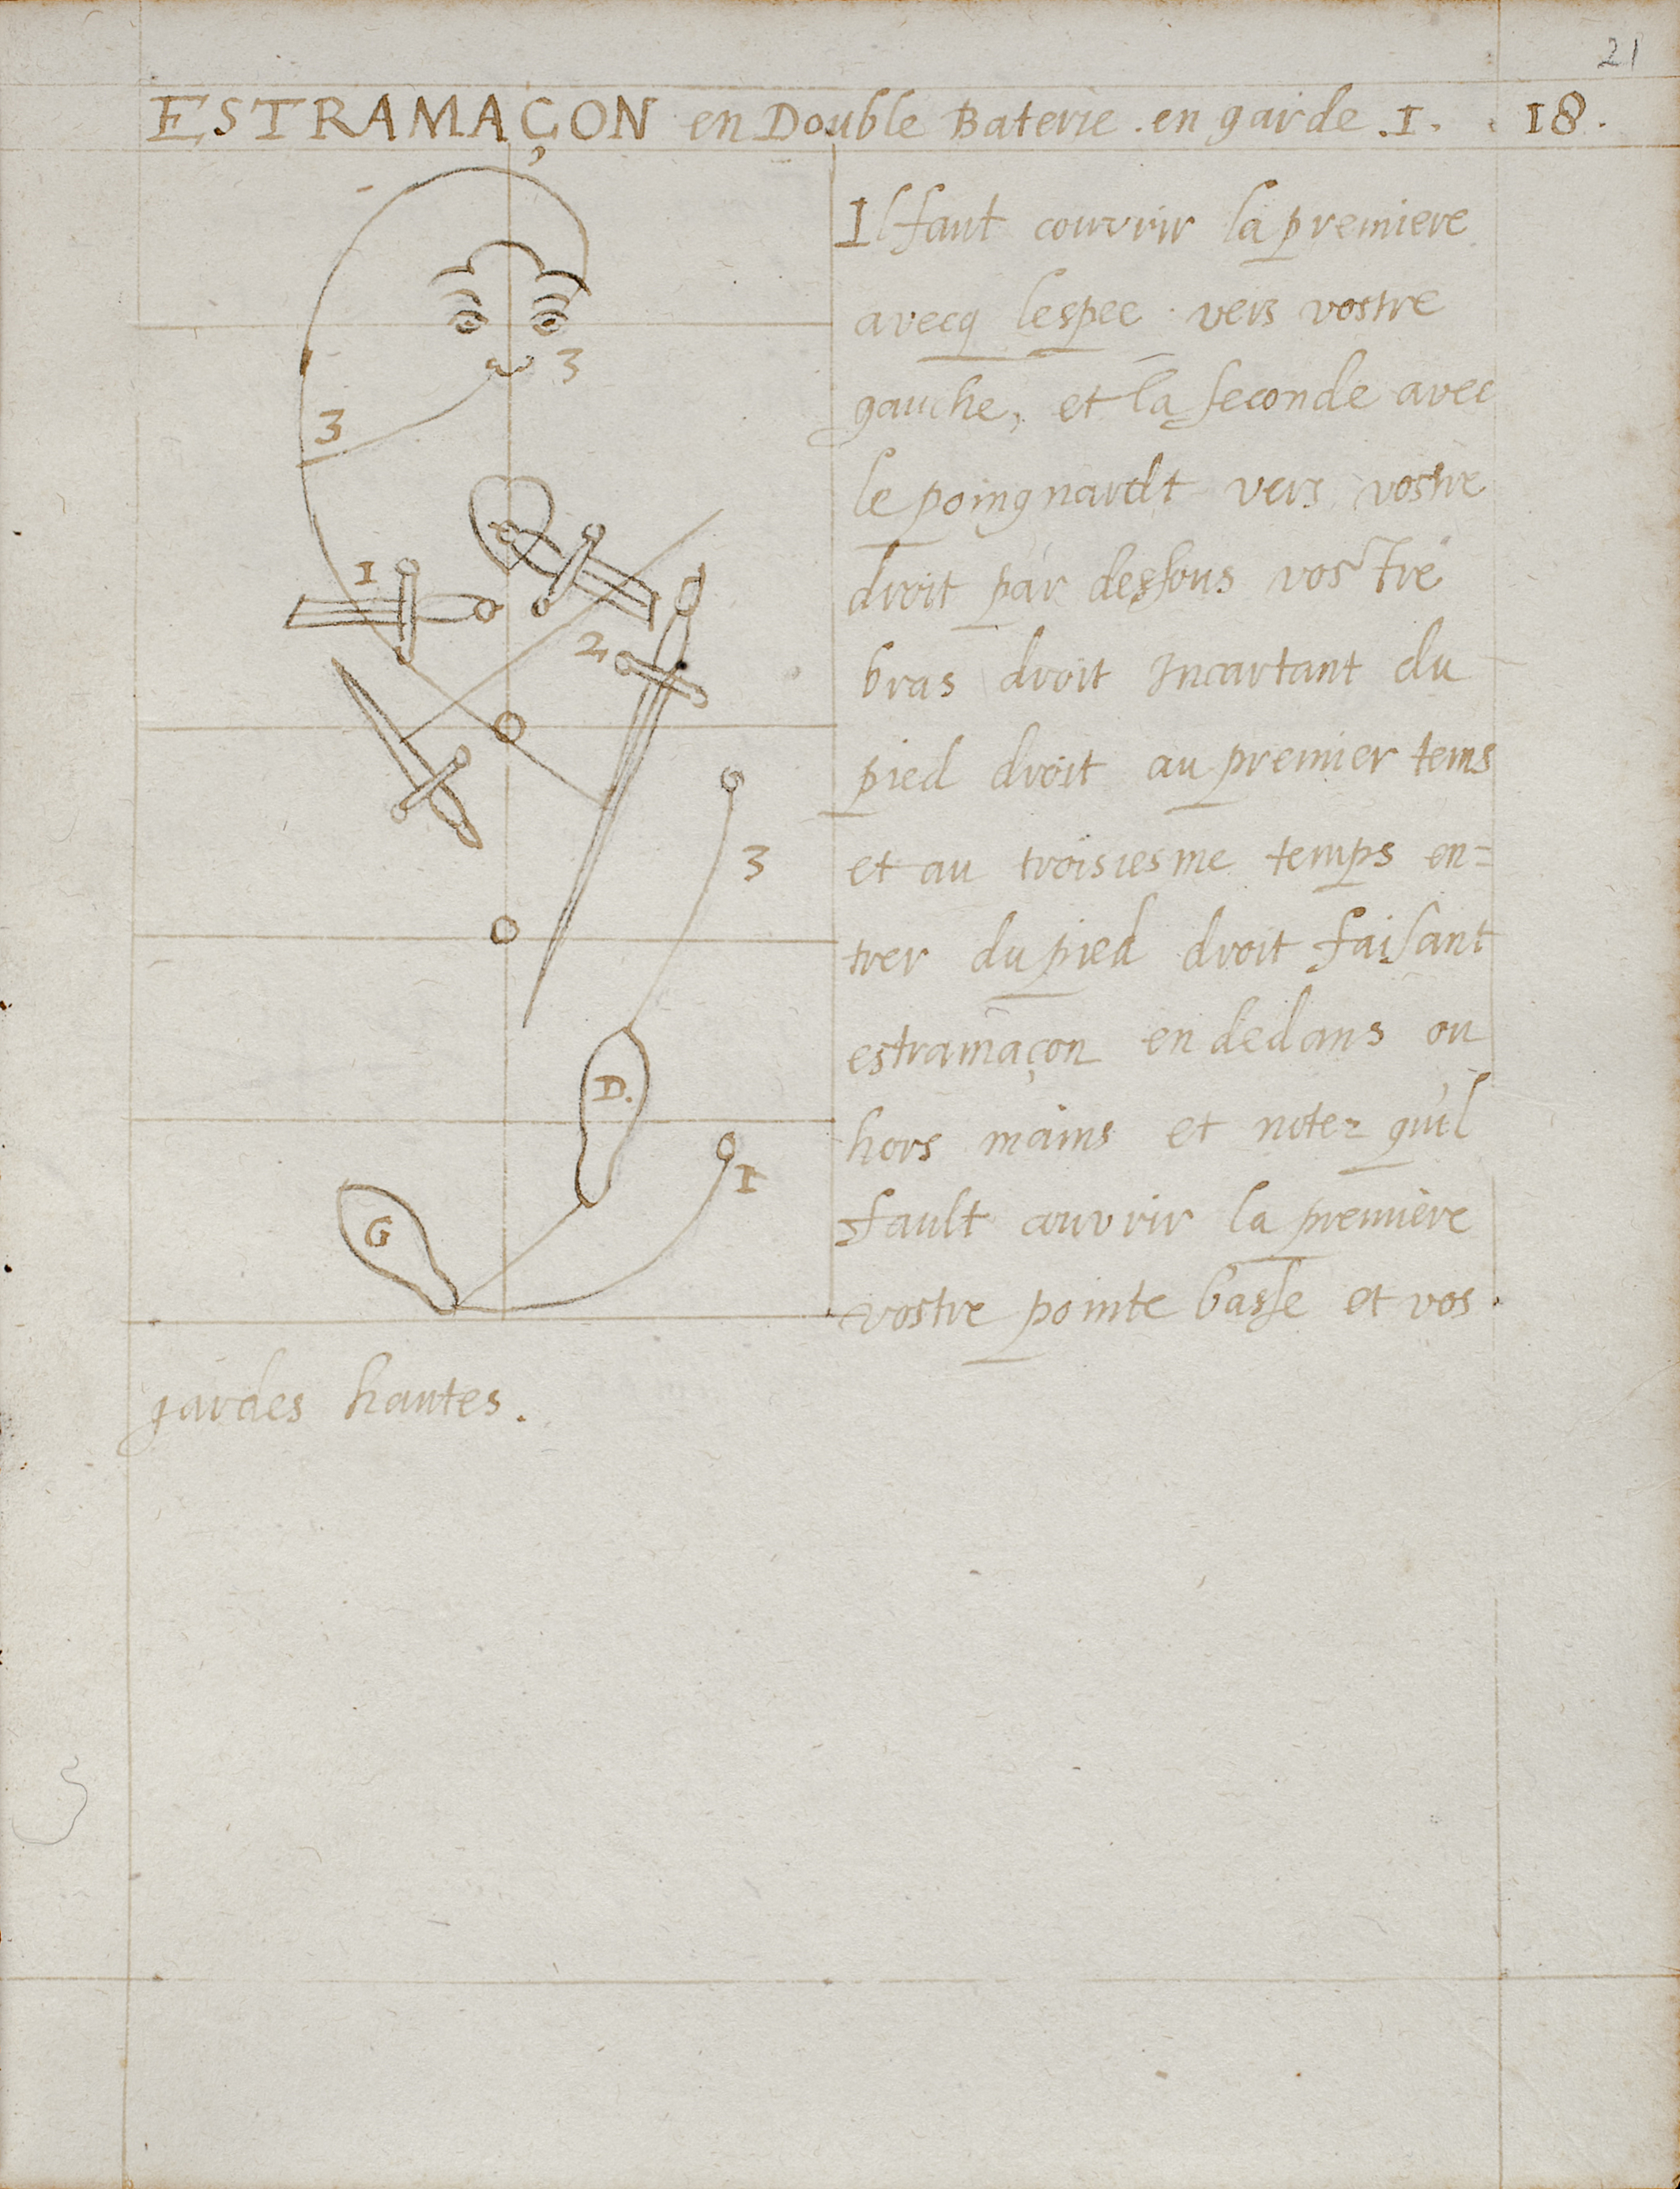 21
ESTRAMAÇON en Double Baterie . en garde . I . 18 .
Il faut couvrir la premiere
avecq lespee vers vostre
gauche, et la seconde avec
le poingnardt vers vostre
droit par dessous vostre
bras droit Incartant du
pied droit au premier tems
et au troisiesme temps en=
trer du pied droit faisant
estramaçon en dedans ou
hors mains et notez quil
fault couvrir la premiere
vostre pointe basse et vos
gardes hautes .
3
3
I
2
3
D.
I
G